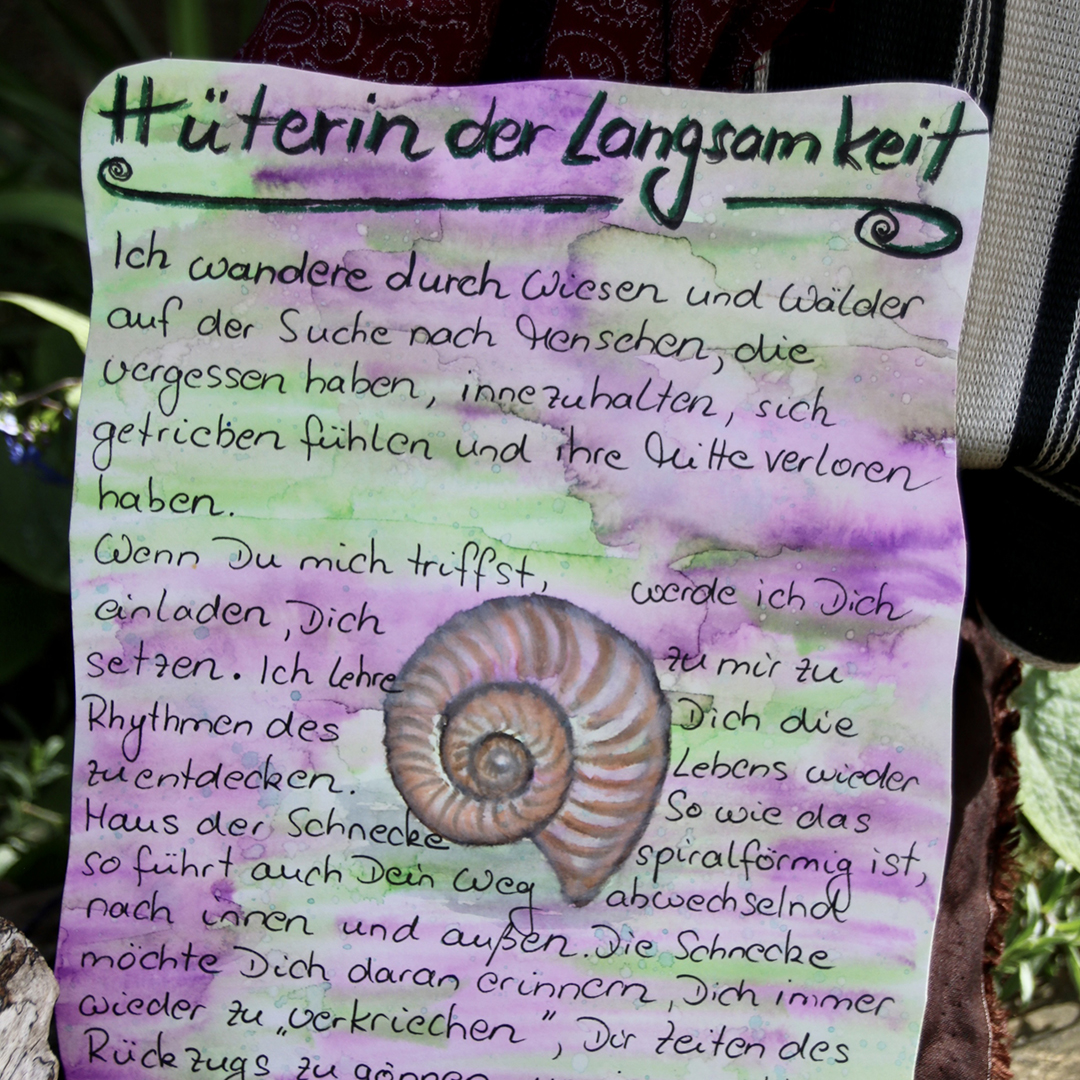 Hüterin der Langsamkeit
Ich wandere durch Wiesen und Wälder
auf der Suche nach Menschen, die
vergessen haben, innezuhalten, sich
getrieben fühlen und ihre Mitte verloren
haben.
Wenn Du mich triffst, werde ich Dich
einladen, Dich zu mir zu
setzen. Ich lehre Dich die
Rhythmen des Lebens wieder
zu entdecken. So wie das
Haus der Schnecke spiralförmig ist,
so führt auch Dein Weg abwechselnd
nach innen und außen. Die Schnecke
möchte Dich daran erinnern, Dich immer
wieder zu „verkriechen", Dir Zeiten des
Rückzugs zu gönnen